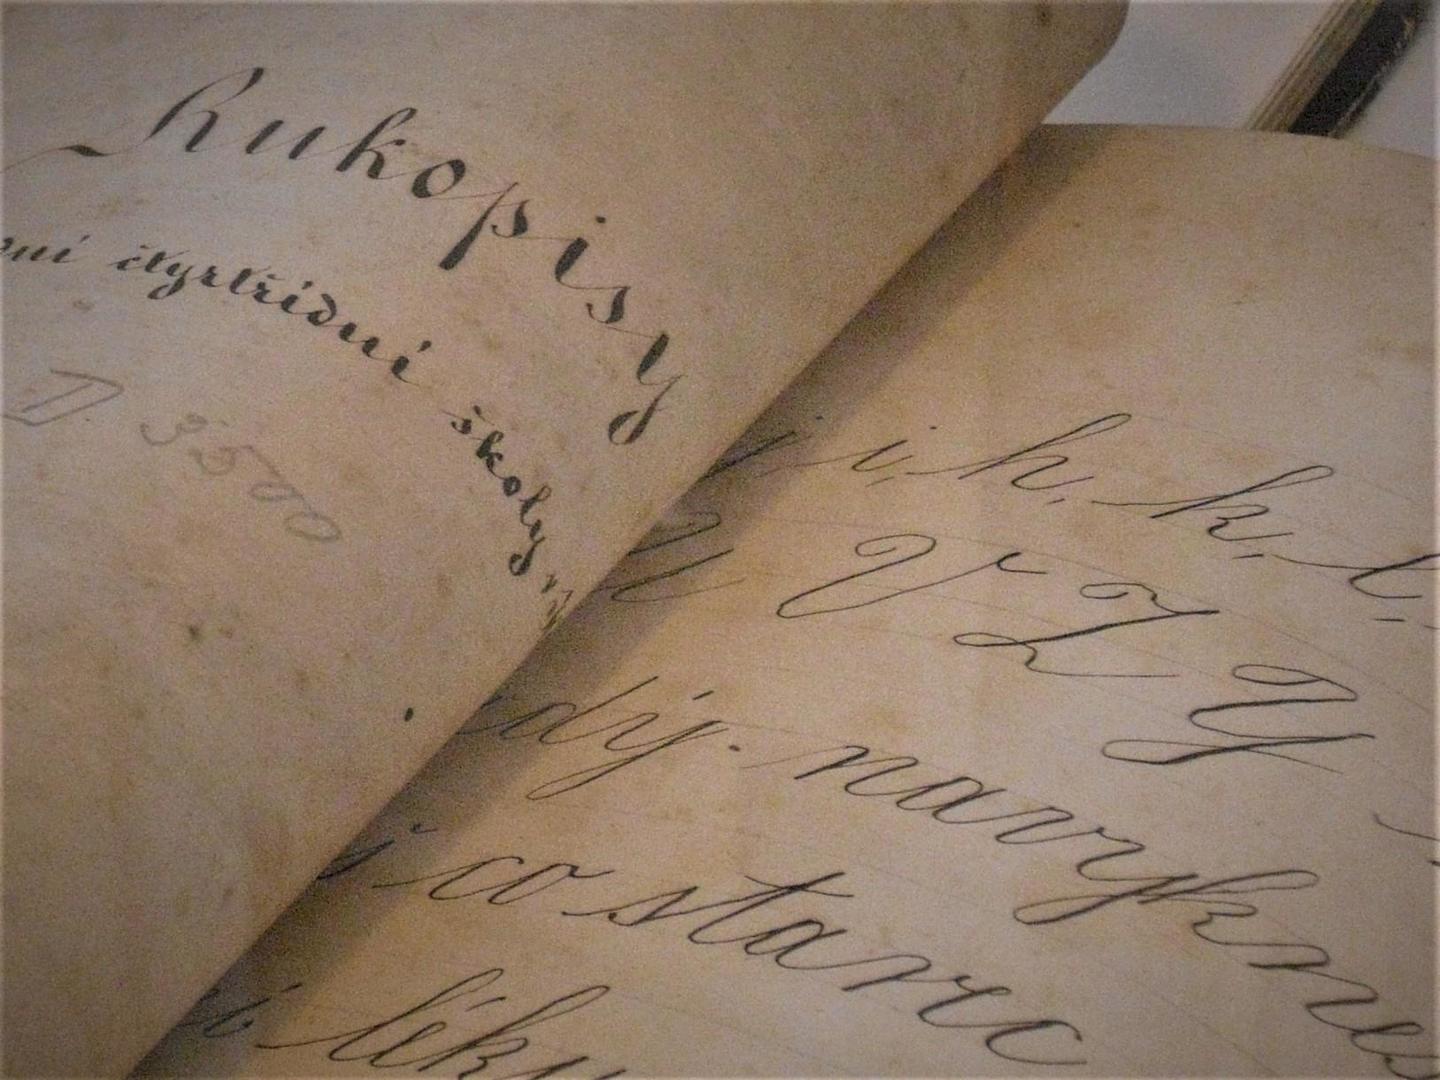 Rukopisy
čtyrtřídní školy
3500
i, h, k, l,
U V Z Y
navyknes
co starc
léky